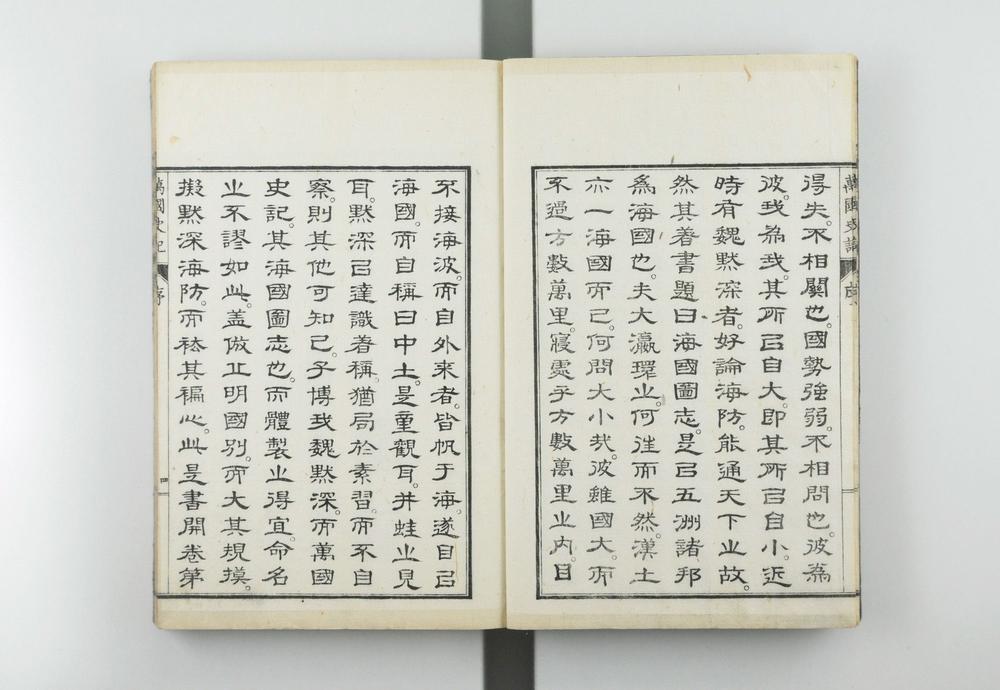 得失。不相關也。國勢強弱。不相問也。彼爲
彼。我爲我。其所㠯自大。即其所㠯自小。近
時有魏默深者。好論海防。能通天下之故。
然其著書題曰海國圖志。是㠯五洲諸邦
爲海國也。夫大瀛環之。何往而不然。漢土
亦一海國而已。何問大小哉。彼雖國大。而
不過方數萬里。寢處乎方數萬里之內。目
不接海波。而自外來者。皆帆于海。遂目㠯
海國。而自稱曰中土。是童觀耳。井蛙之見
耳。默深㠯達識著稱。猶局於素習。而不自
察。則其他可知已。子博我魏默深。而萬國
史記。其海國圖志也。而體製之得宜。命名
之不謬如此。蓋倣正明國別。而大其規摸。
擬默深海防。而袪其褊心。此是書開卷第
萬國史記
序
四
萬國史記
序